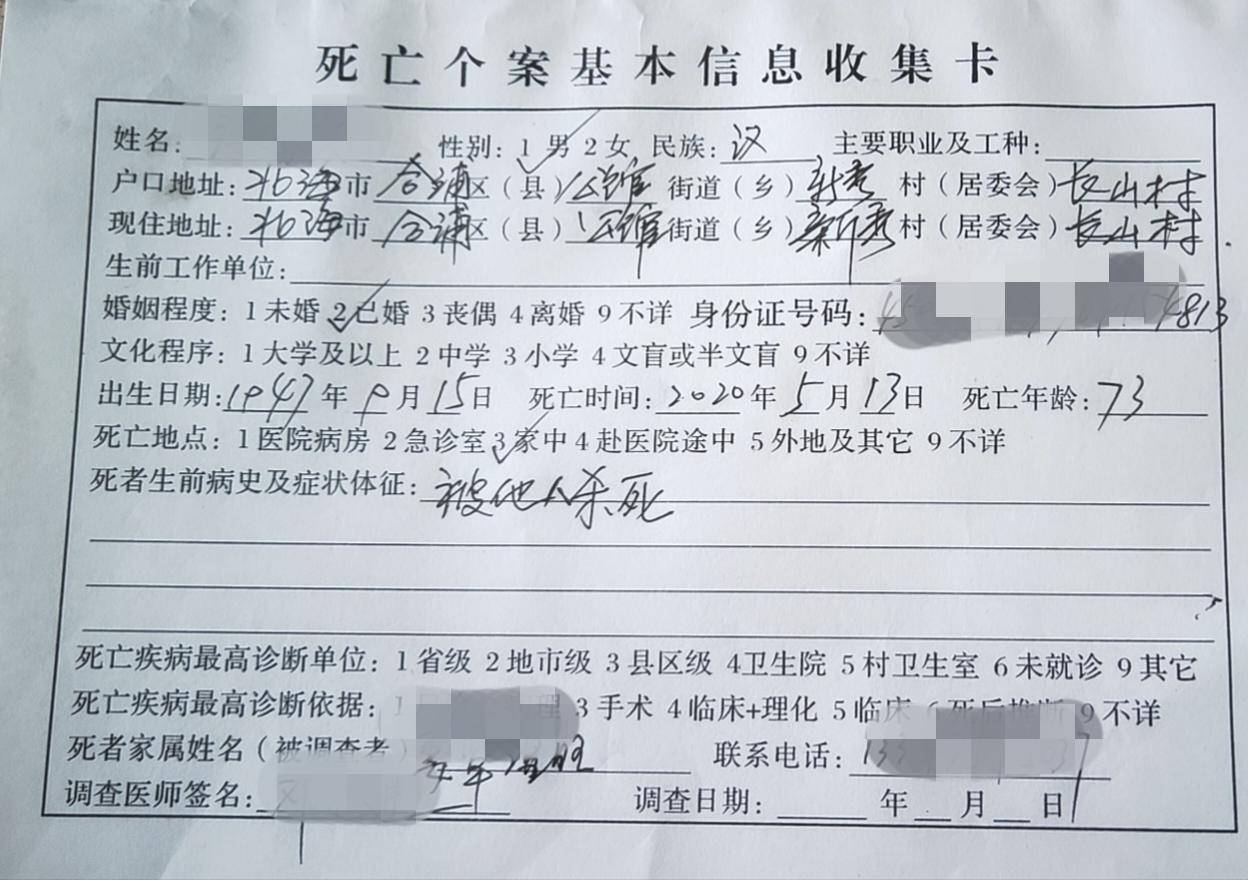 死亡个案基本信息收集卡
姓名: 性别: 1 男 2 女 民族: 汉 主要职业及工种:
户口地址: 北海 市 合浦 区（县）公馆 街道（乡）新秀 村（居委会）长山村
现住地址: 北海 市 合浦 区（县）公馆 街道（乡）新秀 村（居委会）长山村
生前工作单位:
婚姻程度: 1 未婚 2 已婚 3 丧偶 4 离婚 9 不详 身份证号码: 45 4813
文化程序: 1 大学及以上 2 中学 3 小学 4 文盲或半文盲 9 不详
出生日期: 1947 年 9 月 15 日 死亡时间: 2020 年 5 月 13 日 死亡年龄: 73
死亡地点: 1 医院病房 2 急诊室 3 家中 4 赴医院途中 5 外地及其它 9 不详
死者生前病史及症状体征: 被他人杀死
死亡疾病最高诊断单位: 1 省级 2 地市级 3 县区级 4 卫生院 5 村卫生室 6 未就诊 9 其它
死亡疾病最高诊断依据: 理 3 手术 4 临床+理化 5 临床 6 死后推断 9 不详
死者家属姓名（被调查者） 联系电话: 133
调查医师签名: 调查日期: 年 月 日